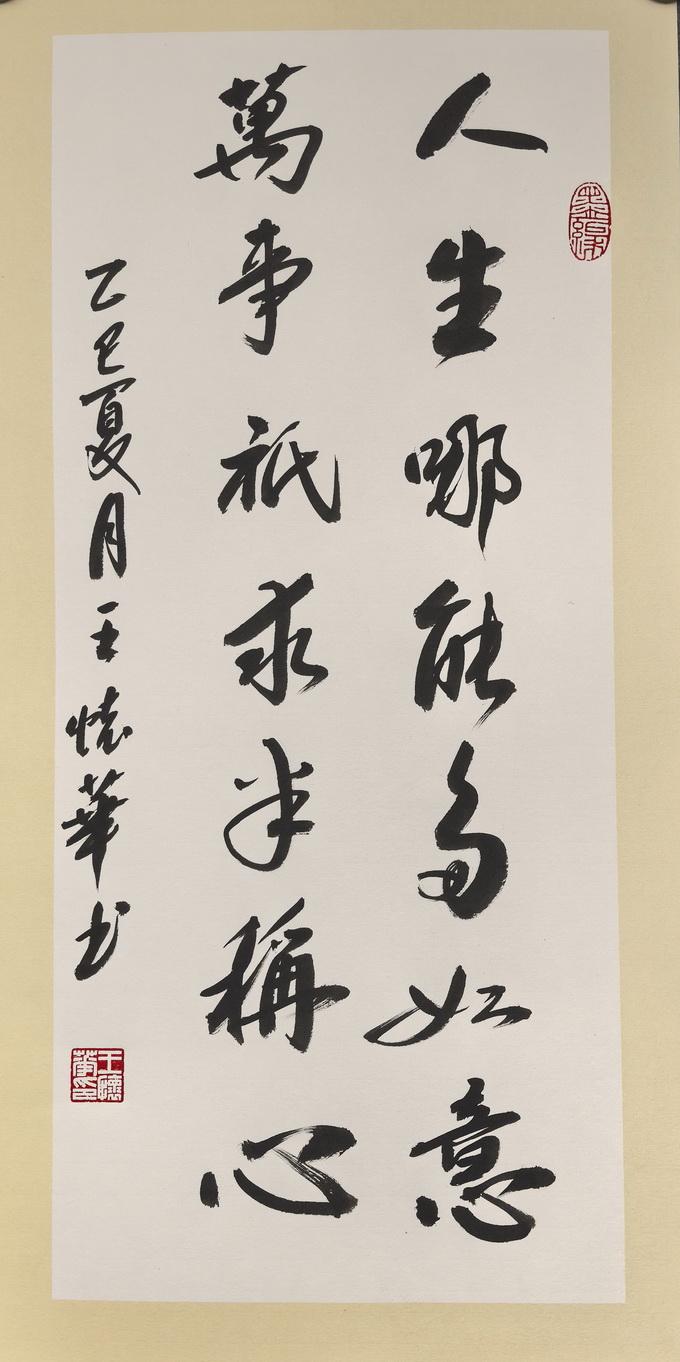 人生哪能多如意
萬事祇求半稱心
乙巳夏月王懷華书
墨緣
王懷華印